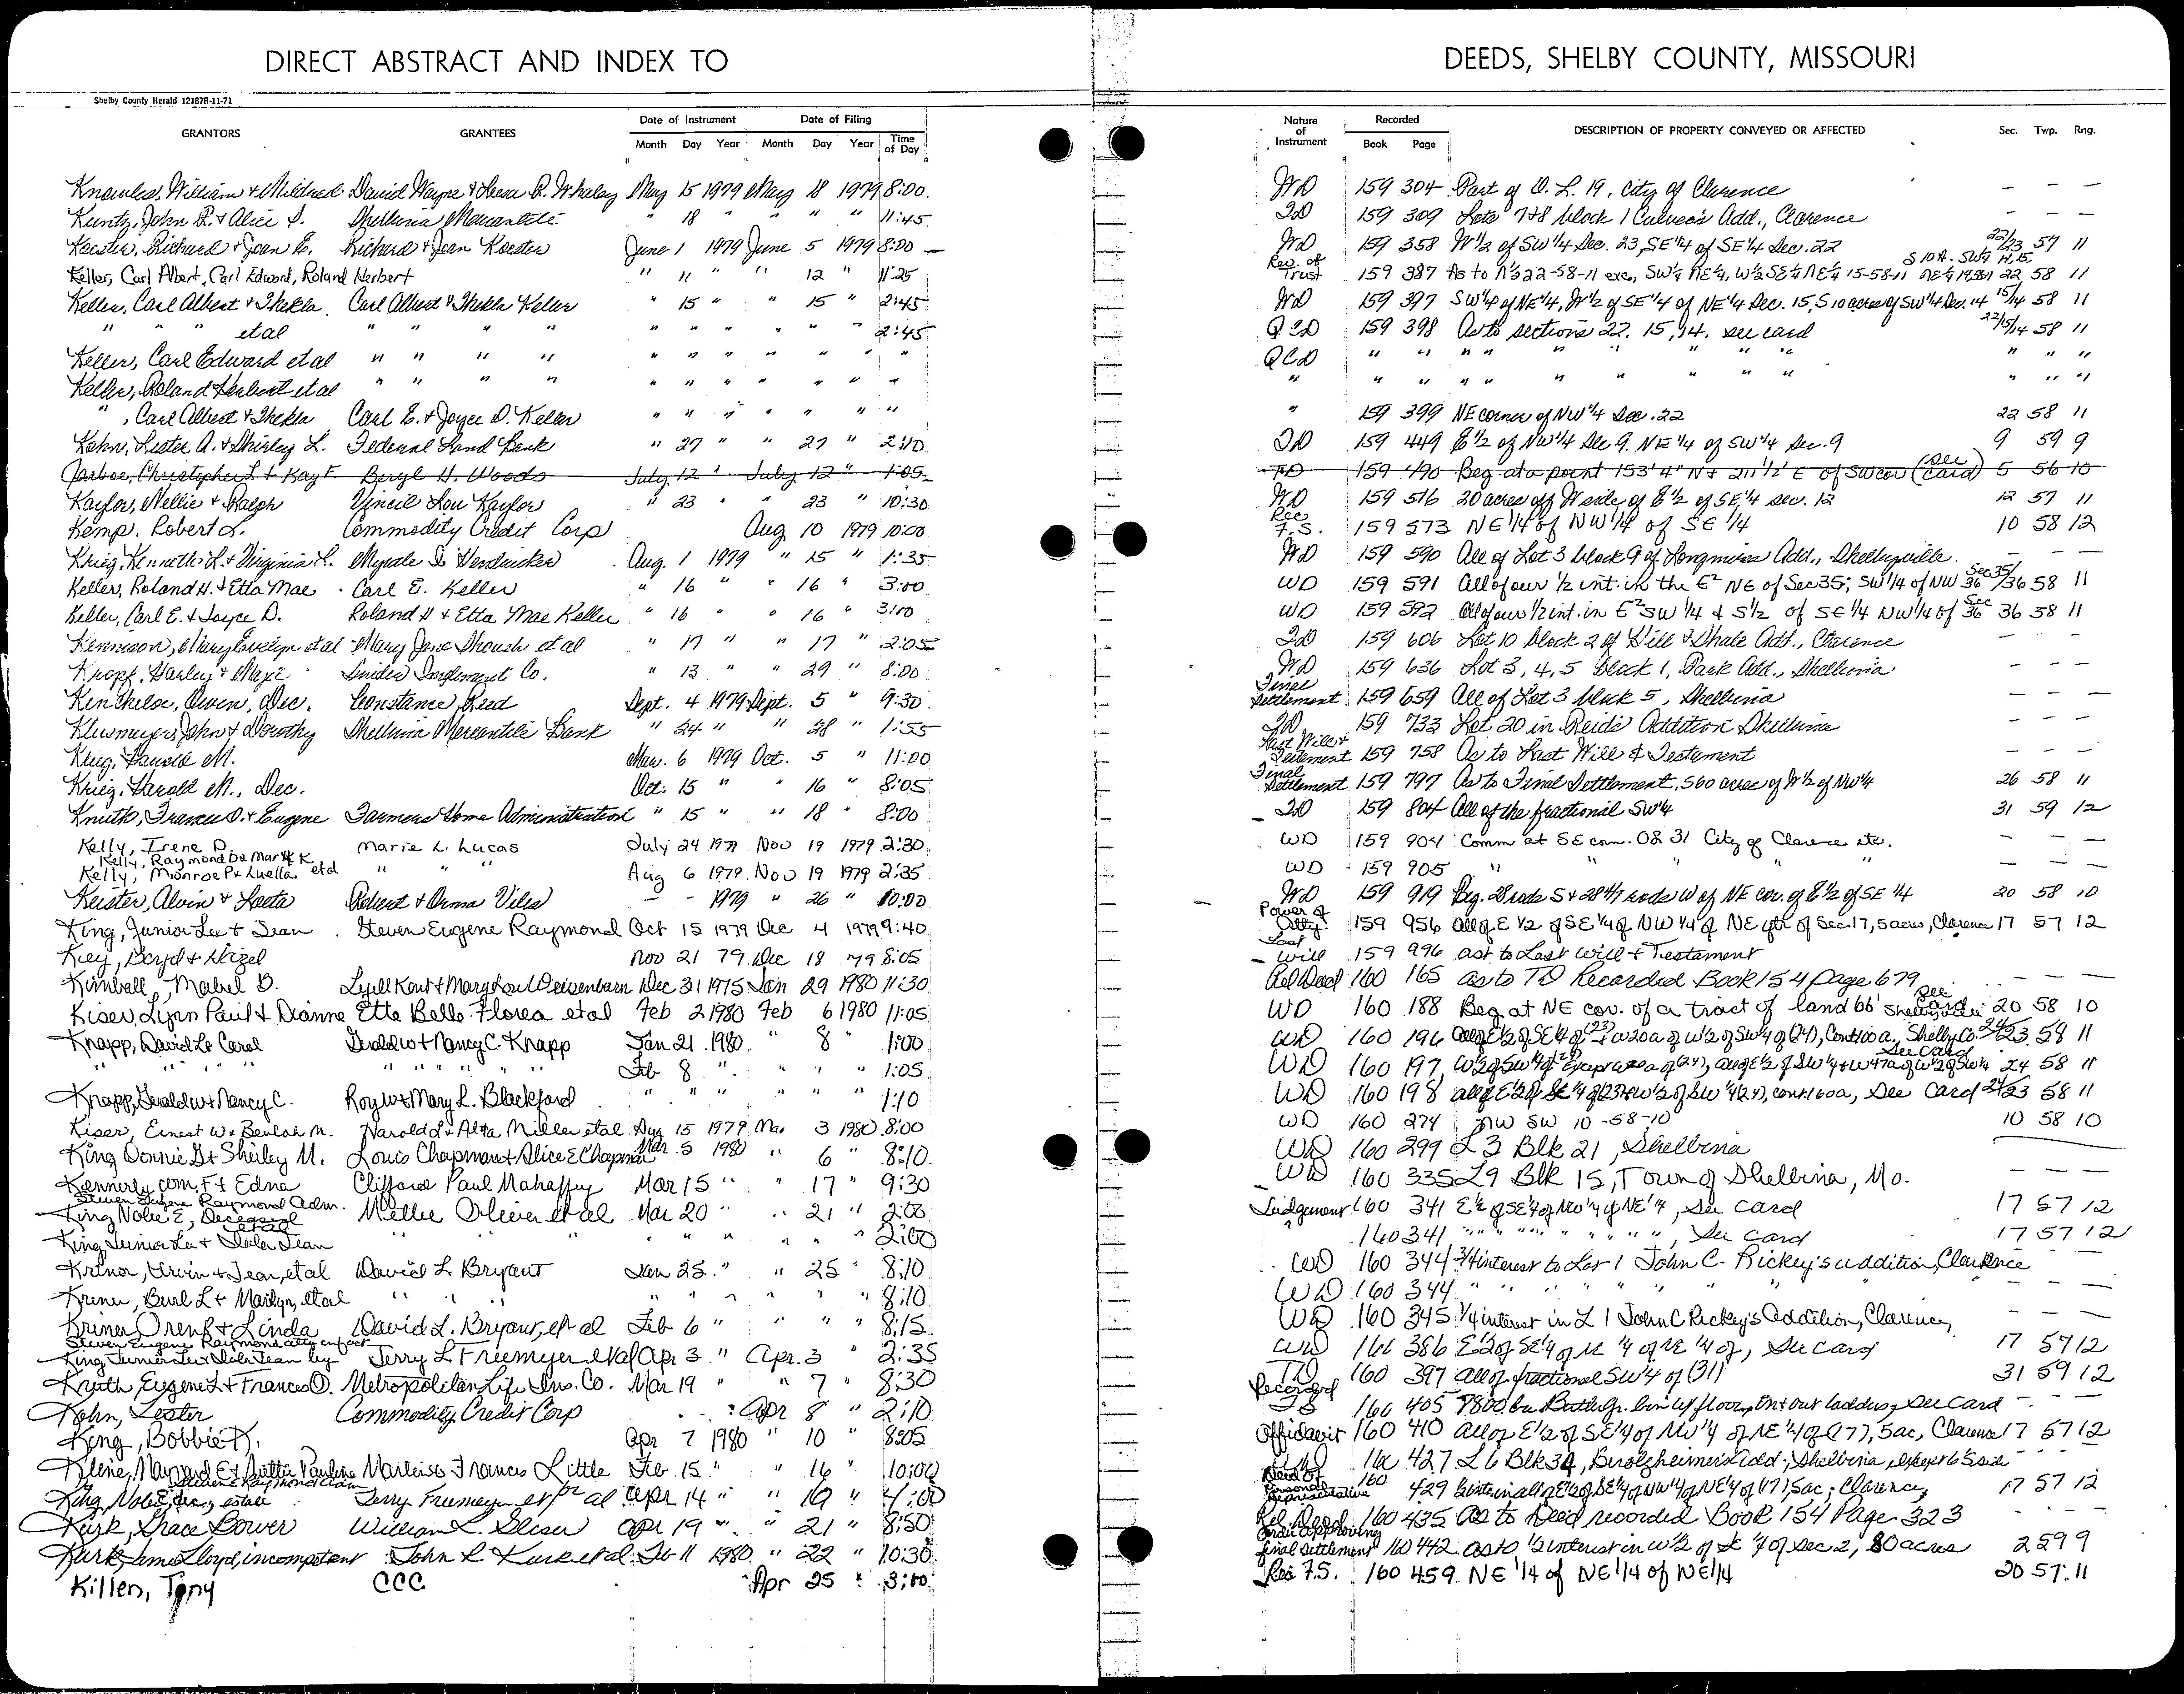 DIRECT ABSTRACT AND INDEX TO DEEDS, SHELBY COUNTY, MISSOURI
Shelby County Herald 12187B-11-71
GRANTORS GRANTEES Date of Instrument Date of Filing Time of Day Nature of Instrument Recorded DESCRIPTION OF PROPERTY CONVEYED OR AFFECTED Sec. Twp. Rng.
Month Day Year Month Day Year Book Page
Knowles, William & Mildred David Wayne & Leesa R. Whaley May 15 1979 May 18 1979 8:00 WD 159 304 Part of O. L. 19, City of Clarence – – –
Kuntz, John R. & Alice S. Shelbina Mercantile " 18 " " " " 11:45 TD 159 309 Lots 7&8 block 1 Culver's Add., Clarence – – –
Koester, Richard & Joan E. Richard & Joan Koester June 1 1979 June 5 1979 8:00 – WD 159 358 W 1/2 of SW 1/4 Sec. 23, SE 1/4 of SE 1/4 Sec. 22 22/23 57 11
Keller, Carl Albert, Carl Edward, Roland Herbert " 11 " " 12 " 11:25 Rev. of Trust 159 387 As to N 1/2 22-58-11 exc, SW 1/4 NE 1/4, W 1/2 SE 1/4 NE 1/4 15-58-11 S 10A. SW 1/4 22 58 11
Keller, Carl Albert & Thekla Carl Albert & Thekla Keller " 15 " " 15 " 2:45 WD 159 397 SW 1/4 of NE 1/4, W 1/2 of SE 1/4 of NE 1/4 Sec. 15, S 10 acres of SW 1/4 Sec. 14 15/14 58 11
" " " et al " " " " " " " " " " 2:45 QCD 159 398 As to sections 22, 15, 14. see card 22/15/14 58 11
Keller, Carl Edward et al " " " " " " " " " " " QCD " " " " " " " " " " " "
Keller, Roland Herbert et al " " " " " " " " " " " " " " " " " " " " " " " "
" , Carl Albert & Thekla Carl E. & Joyce D. Keller " " " " " " " " 159 399 NE corner of NW 1/4 Sec. 22 22 58 11
Kohn, Lester A. & Shirley L. Federal Land Bank " 27 " " 27 " 2:10 TD 159 449 E 1/2 of NW 1/4 Sec 9. NE 1/4 of SW 1/4 Sec. 9 9 59 9
Jarboe, Christopher L & Kay F Beryl H. Woods July 12 " July 12 " 1:05 TD 159 490 Beg. at a point 153' 4" N & 211 1/2' E of SW cor (see card) 5 56 10
Kaylor, Nellie & Ralph Vincil Lou Kaylor " 23 " " 23 " 10:30 WD 159 516 20 acres off W side of E 1/2 of SE 1/4 sec. 12 12 57 11
Kemp, Robert L. Commodity Credit Corp Aug 10 1979 10:00 Rec F.S. 159 573 NE 1/4 of NW 1/4 of SE 1/4 10 58 12
Krieg, Kenneth L. & Virginia L. Myrtle I. Hendricker Aug. 1 1979 " 15 " 1:35 WD 159 590 All of Lot 3 block 9 of Longmires Add., Shelbyville. – – –
Keller, Roland H. & Etta Mae Carl E. Keller " 16 " " 16 " 3:00 WD 159 591 All of our 1/2 int. in the E² NE of Sec 35; SW 1/4 of NW Sec 36 35/36 58 11
Keller, Carl E. & Joyce D. Roland H & Etta Mae Keller " 16 " " 16 " 3:10 WD 159 592 All of our 1/2 int. in E² SW 1/4 & S 1/2 of SE 1/4 NW 1/4 of Sec 36 36 58 11
Kennison, Mary Evelyn et al Mary Jane et al " 17 " " 17 " 2:05 TD 159 606 Lot 10 block 2 of Hill & Shale Add., Clarence – – –
Kropf, Harley & Maxie Snider Implement Co. " 13 " " 29 " 8:00 WD 159 636 Lot 3, 4, 5 block 1, Park Add., Shelbina – – –
Kincheloe, Owen, Dec. Constance Reed Sept. 4 1979 Sept. 5 " 9:30 Final Settlement 159 659 All of Lot 3 block 5, Shelbina – – –
Klusmeyer, John & Dorothy Shelbina Mercantile Bank " 24 " " 28 " 1:55 TD 159 733 Lot 20 in Reid's Addition Shelbina – – –
Krieg, Harold M. Mar. 6 1979 Oct. 5 " 11:00 Last Will & Testament 159 758 As to Last Will & Testament – – –
Krieg, Harold M., Dec. Oct. 15 " " 16 " 8:05 Final Settlement 159 797 As to Final Settlement, 560 acres of W 1/2 of NW 1/4 26 58 11
Knuth, Frances O. & Eugene Farmers Home Administration " 15 " " 18 " 8:00 TD 159 804 All of the fractional SW 1/4 31 59 12
Kelly, Irene D. Marie L. Lucas July 24 1979 Nov 19 1979 2:30 WD 159 904 Comm at SE corn. OB 31 City of Clarence etc. – – –
Kelly, Raymond D & Mary K
Kelly, Monroe P & Luella et al " " " Aug 6 1979 Nov 19 1979 2:35 WD 159 905 " " " " – – –
Keister, Alvin & Loeta Robert & Orma Viles – – 1979 " 26 " 10:00 WD 159 919 Beg. 28 rods S & 28 4/7 rods W of NE cor. of E 1/2 of SE 1/4 20 58 10
King, Junior Lee & Jean Steven Eugene Raymond Oct 15 1979 Dec 4 1979 9:40 Power of Atty. 159 956 All of E 1/2 of SE 1/4 of NW 1/4 of NE 4th of Sec. 17, 5 acres, Clarence 17 57 12
Key, Boyd & Hazel Nov 21 79 Dec 18 79 8:05 Last Will 159 996 as to Last Will & Testament
Kimball, Mabel B. Lyell Kent & Mary Lou Weisenborn Dec 31 1975 Jan 29 1980 11:30 Rel Deed 160 165 as to TD Recorded Book 154 page 679 – – –
Kiser, Lynn Paul & Dianne Etta Belle Florea et al Feb 2 1980 Feb 6 1980 11:05 WD 160 188 Beg. at NE cor. of a tract of land 66' Shelbyville See Card 20 58 10
Knapp, David L & Carol Gerald W & Nancy C. Knapp Jan 21 1980 " 8 " 1:00 WD 160 196 all of E 1/2 of SE 1/4 of (23) & W 20a of W 1/2 of SW 1/4 of (24), Cont 100a, Shelby Co. 24/23 58 11
" " " " " " " " Feb 8 " " " " 1:05 WD 160 197 W 1/2 of SW 1/4 of (24) Except W 20a of (24), all of E 1/2 of SW 1/4 & W 47a of W 1/2 of SE 1/4 See Card 24 58 11
Knapp, Gerald W & Nancy C. Roy W & Mary L. Blackford " " " " " " 1:10 WD 160 198 all of E 1/2 of SE 1/4 of 23 & W 1/2 of SW 1/4 (24), cont 160a, See Card 24/23 58 11
Kiser, Ernest W & Beulah M. Harold L & Alta Miller et al Aug 15 1979 Mar 3 1980 8:00 WD 160 274 NW SW 10-58-10 10 58 10
King Donnie G & Shirley M. Louis Chapman & Alice E Chapman Mar 5 1980 " 6 " 8:10 WD 160 299 L 3 Blk 21, Shelbina
Kennerly, Wm. F & Edna Clifford Paul Mahaffy Mar 15 " " 17 " 9:30 WD 160 335 L9 Blk 15, Town of Shelbina, Mo. – – –
Steven Eugene Raymond Adm.
King Nolie E, Deceased et al Nellie Oliver et al Mar 20 " " 21 " 2:00 Judgement 160 341 E 1/2 of SE 1/4 of NW 1/4 of NE 1/4, See Card 17 57 12
King, Junior Lee & Jean " " " " " " " 2:00 " 160 341 " " " " " ", See Card 17 57 12
Kriner, Ervin & Jean, et al David L. Bryant Jan 25 " " 25 " 8:10 WD 160 344 3/4 interest to Lot 1 John C. Rickey's addition, Clarence
Kriner, Burl L & Marilyn, et al " " " " " " " " 8:10 WD 160 344 " " " " " – – –
Kriner Oren F & Linda David L. Bryant, et al Feb 6 " " " " 8:15 WD 160 345 1/4 interest in L 1 John C Rickey's Addition, Clarence – – –
Steven Eugene Raymond atty in fact
King Junior Lee & Jean by Jerry L Freemyer et al Apr 3 " Apr. 3 " 2:35 WD 160 386 E 1/2 of SE 1/4 of N 1/4 of NE 1/4 of, See Card 17 57 12
Knuth, Eugene L & Frances O. Metropolitan Life Ins. Co. Mar 19 " " 7 " 8:30 TD 160 397 all of fractional SW 1/4 of (31) 31 59 12
Kohn, Lester Commodity Credit Corp Apr 8 " 2:10 Recorded FS 160 405 7800 bu Butler Gr. bin w/ floor, in & out ladders, See Card – – –
King, Bobbie K. Apr 7 1980 " 10 " 8:05 Affidavit 160 410 all of E 1/2 of SE 1/4 of NW 1/4 of NE 1/4 of (17), 5ac, Clarence 17 57 12
Kline, Maynard E & Pauline Frances Little Feb 15 " " 16 " 10:00 WD 160 427 L 6 Blk 34, Add; Shelbina, except 65
Steven E Raymond Adm
King, Nolie, dec, estate Jerry Freemyer et al Apr 14 " " 19 " 4:00 Deed of Personal Representative 160 429 int in all of E 1/2 of SE 1/4 of NW 1/4 of NE 1/4 of (17), 5ac; Clarence, 17 57 12
Kirk, Grace Bower William L. Apr 19 " " 21 " 8:50 Rel. Deed 160 435 as to Deed recorded Book 154 Page 323 – – –
Kirk, Lloyd, incompetent John R. Kirk et al Feb 11 1980 " 22 " 10:30 Order approving final settlement 160 442 as to 1/2 interest in W 1/2 of SE 1/4 of Sec 2, 80 acres 2 59 9
Killen, Tony CCC Apr 25 " 3:00 Rec F.S. 160 459 NE 1/4 of NE 1/4 of NE 1/4 20 57 11